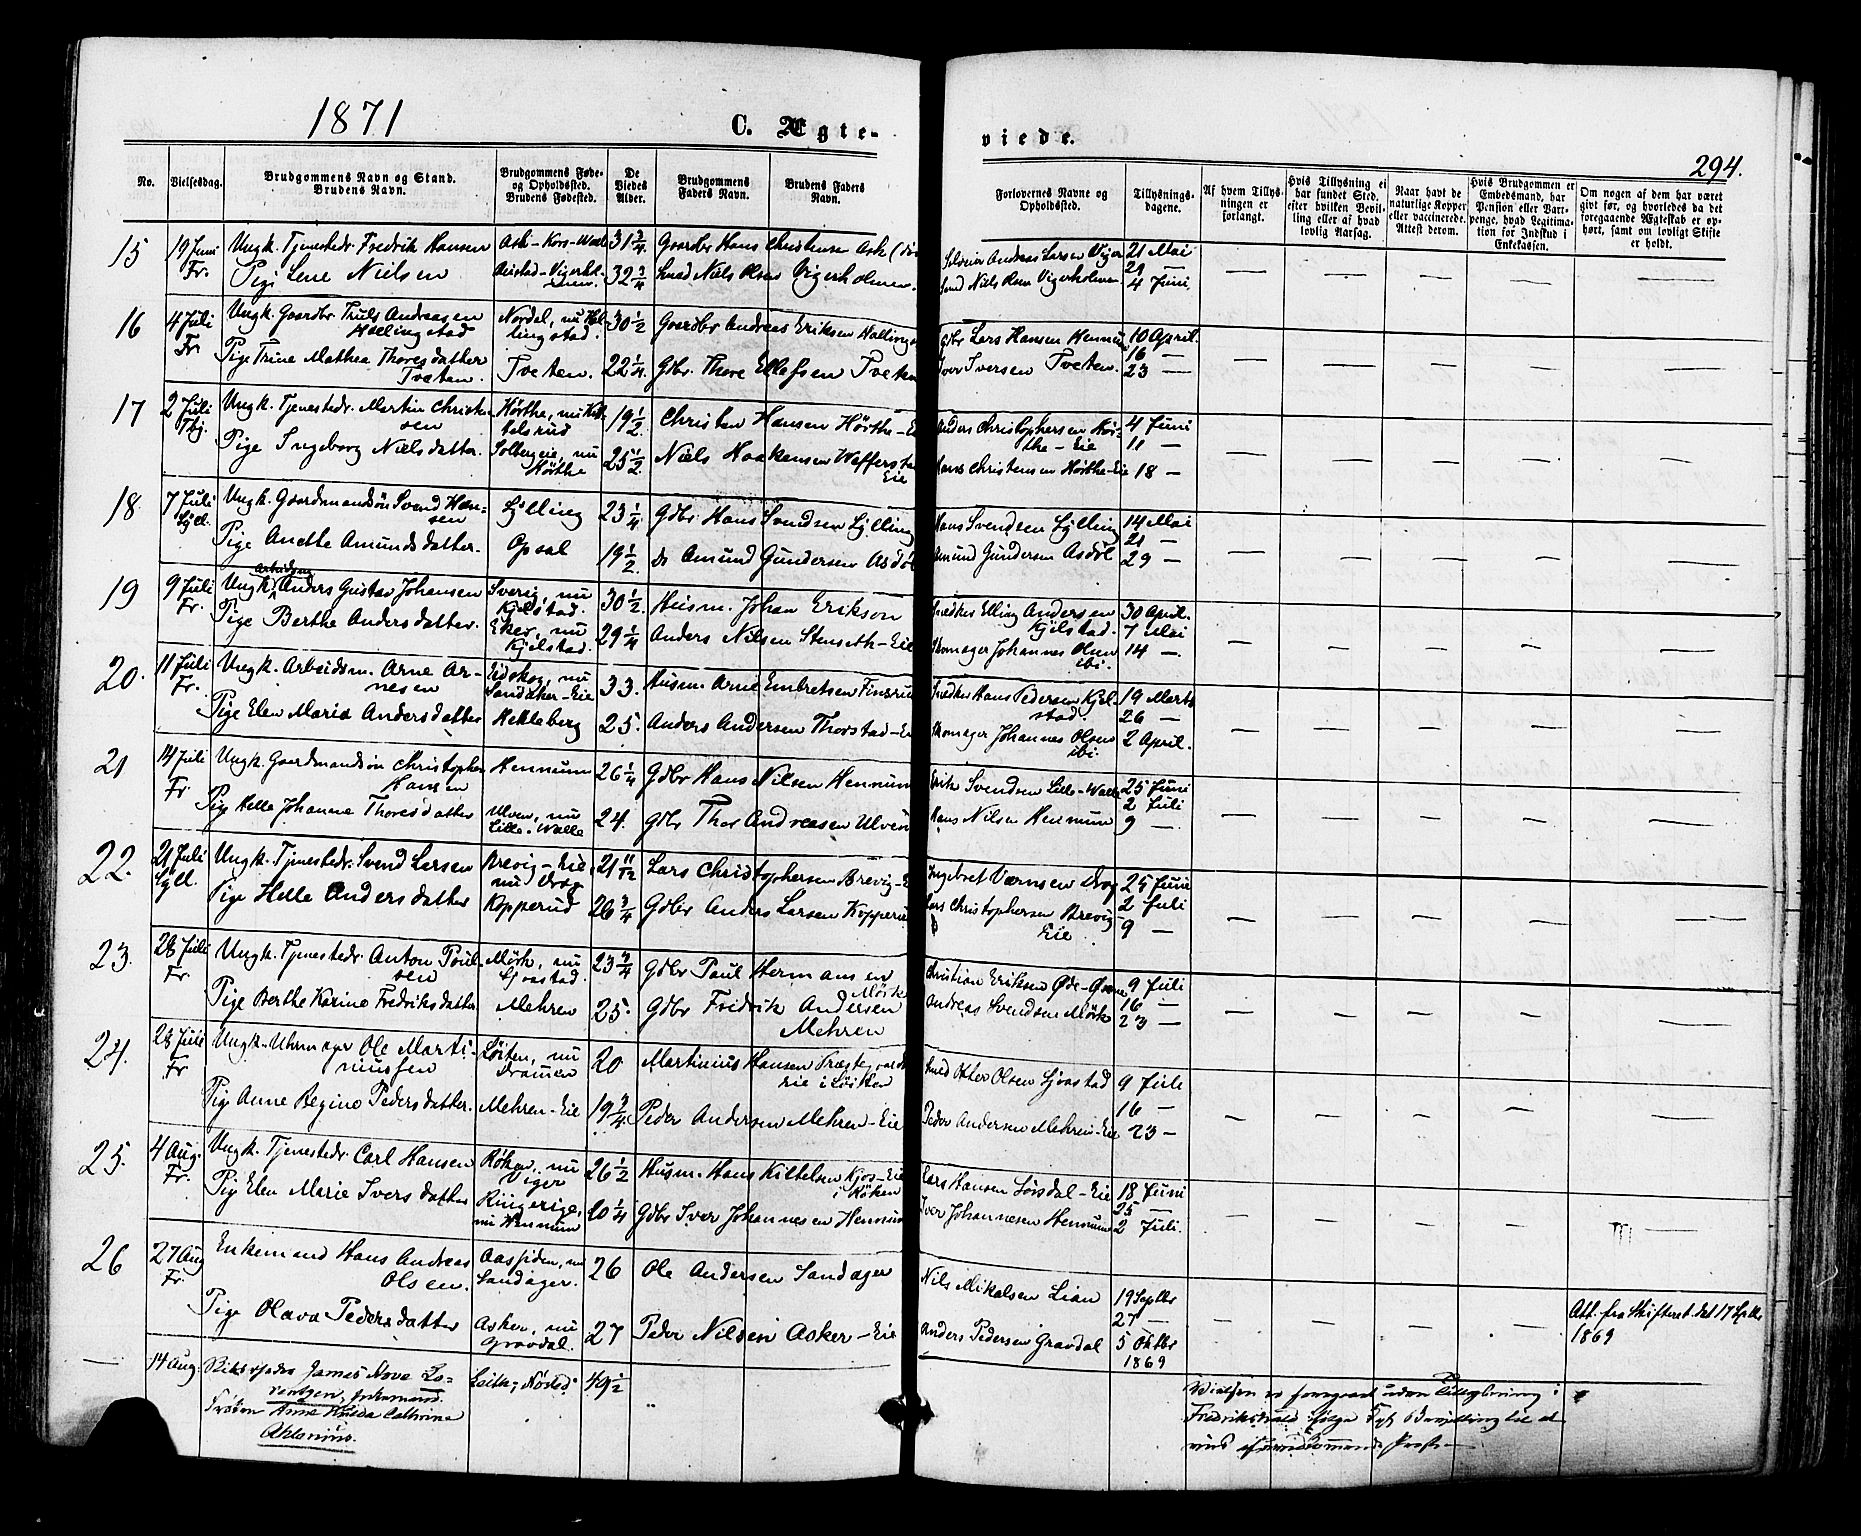 1871
C. Ægte-
viede.
294.
No.
Vielsesdag.
Brudgommens Navn og Stand.
Brudens Navn.
Brudgommens Føde-
og Opholdssted.
Brudens Fødested.
De
Viedes
Alder.
Brudgommens
Faders Navn.
Brudens Faders
Navn.
Forlovernes Navne og
Opholdssted.
Tillysnings-
dagene.
Af hvem Tillys-
ningen er
forlangt.
Hvis Tillysning ei
har fundet Sted,
efter hvilken Bevil-
ling eller af hvad
lovlig Aarsag.
Naar havt de
naturlige Kopper
eller vaccinerede.
Attest derom.
Hvis Brudgommen er
Embedsmand, har
Pension eller Var-
penge, hvad Legitima-
tion for Indskud i
Enkekassen.
Om nogen af dem har været
gift før, og hvorledes da det
foregaaende Ægteskab er op-
hørt, samt om lovligt Skifte
er holdt.
15 19 Juni Fr. Ungk. Tjenestedr. Fredrik Hansen Ask-Kors- 31 3/4 Gaardbr Hans Christensen Ask Andreas Larsen Viger 21 Mai
Pige Lene Nielsen Vigerhol-men 32 3/4 Niels Olsen Vigerholmen Niels Olsen Vigerholmen 29 —
4 Juni
16 4 Juli Fr Ungk. Gaardbr. Truls Andreasen Hallingstad Nordal, nu Hal-lingstad. 30 1/2 Gaardbr Andreas Eriksen Halling Lars Hansen Hennum 10 April.
Pige Trine Mathea Thoresdatter Tveten. Tveten. 22 1/4 Gdbr. Thore Ellefsen Tveten Iver Iversen Tveten. 16 —
23 —
17 2 Juli Tbj. Ungk. Tjenestedr. Martin Christensen Hörthe, nu Kittelsrud 19 1/2 Christen Hansen Hörthe-Eie Christophersen Hörthe-Eie 4 Juni
Pige Ingeborg Nielsdatter. Solbergeie, nu Hörthe 25 1/2 Niels Haakensen Eie Hans Christensen Hörthe-Eie 11 —
18 —
18. 7 Juli Lyll. Ungk. Gaardmandsön Svend Hansen Lylling 23 1/4 Gdbr. Hans Svendsen Lylling Hans Svendsen Lylling 14 Mai
Pige Anette Amundsdatter. Opsal 19 1/2 do Amund Gundersen Asdöl Amund Gundersen Asdöl 21 —
29 —
19 9 Juli Fr. Ungk. Arbeidsm Anders Gustav Johansen Sverig, nu Kjelstad. 30 1/2 Husm. Johan Erikson Elling Andersen Kjelstad. 30 April.
Pige Berthe Andersdatter. Eker, nu Kjelstad. 29 1/4 Anders Nilsen Stenseth-Eie Skomager Johannes Olsen ibi. 7 Mai
14 —
20. 11 Juli Fr. Ungk. Arbeidsm. Arne Arnesen Eidskog, nu Sandaker-Eie 33. Husm. Arne Embretsen Finsrud Hans Pedersen Kjelstad. 19 Marts
Pige Elen Maria Andersdatter Hekleberg 25. Anders Andersen Thorstad-Eie Skomager Johannes Olsen ibi. 26 —
2 April.
21 14 Juli Fr Ungk. Gaardmandsön Christopher Hansen Hennum 26 1/4 Gdbr Hans Nilsen Hennum Svendsen Lille-Walle 25 Juni
Pige Helle Johanne Thoresdatter Ulven, nu Lille-Walle 24. Gdbr Thor Andreasen Ulven Hans Nilsen Hennum 2 Juli
9 —
22. 21 Juli Lyll. Ungk. Tjenestedr. Svend Larsen Brevig-Eie, nu Drag 21 11/12 Lars Christophersen Brevig-E Ingebret Værnsen Drag 25 Juni
Pige Helle Andersdatter Kopperud 26 3/4 Gdbr Anders Larsen Kopperud Lars Christophersen Brevig-Eie 2 Juli
9 —
23. 28 Juli Fr. Ungk. Tjenestedr. Anton Poulsen Mörk, nu Gjvastad. 23 3/4 Gdbr Paul Hermansen Mörk Christian Eriksen Øde- 9 Juli
Pige Berthe Karine Fredriksdatter Mehren 25. Gdbr Fredrik Andersen Mehren Andreas Svendsen Mörk 16 —
23 —
24. 28 Juli Fr Ungk. Uhrmager Ole Martinussen Löiten, nu Dramen 20 Martinius Hansen Eie i Löiten Otter Olsen 9 Juli
Pige Anne Regine Pedersdatter. Mehren-Eie 19 3/4 Peder Andersen Mehren-Eie Peder Andersen Mehren-Eie 16 —
23 —
25. 4 Aug. Fr. Ungk. Tjenestedr. Carl Hansen Röken, nu Viger 26 1/2 Husm. Hans Kittelsen Kjos-Eie i Röken Lars Hansen Lörsdal-Eie 18 Juni
Pige Elen Marie Iversdatter Ringerige, nu Hennum 20 1/4 Gdbr Iver Johannesen Hennum Iver Johannesen Hennum 25 —
2 Juli.
26 27 Aug Fr. Enkemand Hans Andreas Olsen. Aassiden, nu Sandager. 26 Ole Andersen Sandager Nils Mikalsen Lian 19 Septbr
Pige Olava Pedersdatter Asker, nu Gravdal. 27 Peder Nilsen Asker-Eie Anders Pedersen Gravdal 27 —
5 Oktbr
1869
Att. fra Skifteret det 17 Sptbr
1869
— 14 Aug. James Nove Lorentzen, Enkemand. Leith, Nösted. 49 1/2
Fröken Anne Hulda Cathrine
Vielsen er foregaaet uden Tillysning i
Fredrikshald ifølge Bevilling
vedkommende Præst